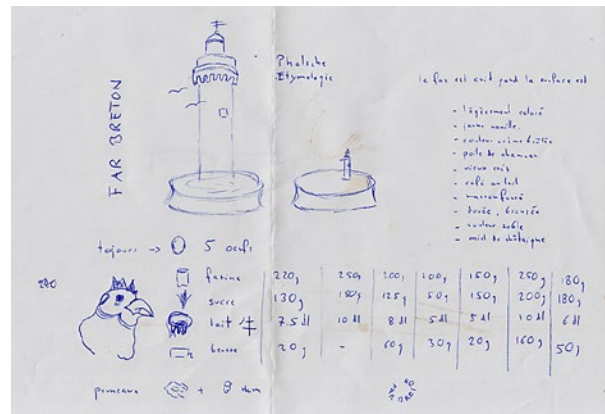 FAR BRETON
Phalsche
Etymologie
le far est cuit quand la surface est
- légèrement coloré
- jaune vanille.
- couleur crème brûlée
- poils de chameau
- vieux cuir
- café au lait
- marron foncé
- dorée, bronzée
- couleur sable
- miel de châtaigne
toujours → 5 oeufs
farine 220g 250g 200g 100g 150g 250g 180g
sucre 130g 180g 125g 50g 150g 200g 180g
lait 7.5 dl 10 dl 8 dl 5 dl 5 dl 10 dl 6 dl
beurre 20g - 60g 30g 20g 160g 50g
pruneaux +